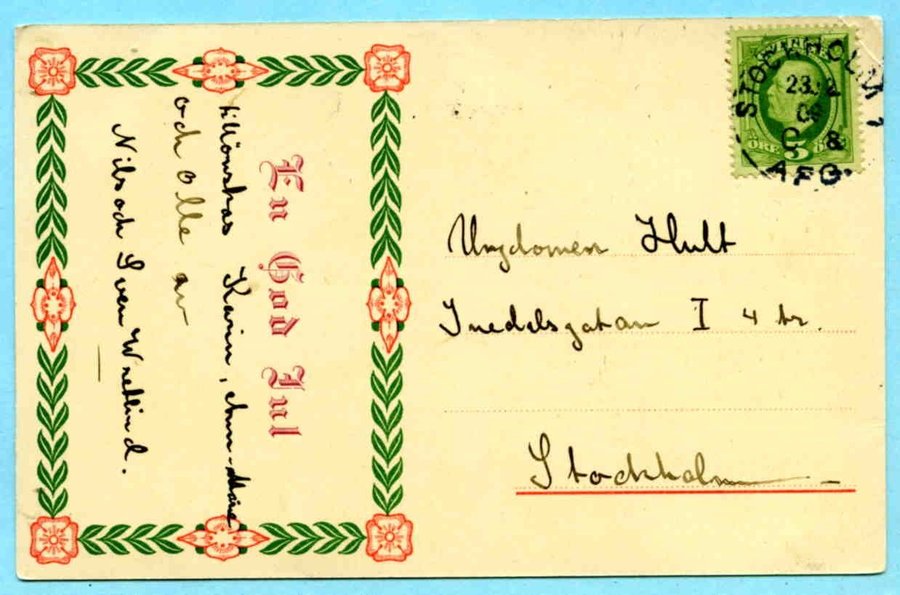 En God Jul
tillönskas Karin, Ann-Marie
och Olle av
Nils och Sven Wretlind.
STOCKHOLM 1
23.12
8
AFG.
ÖRE 5 ÖRE
Ungdomen Hult
Inedalsgatan I 4 tr.
Stockholm